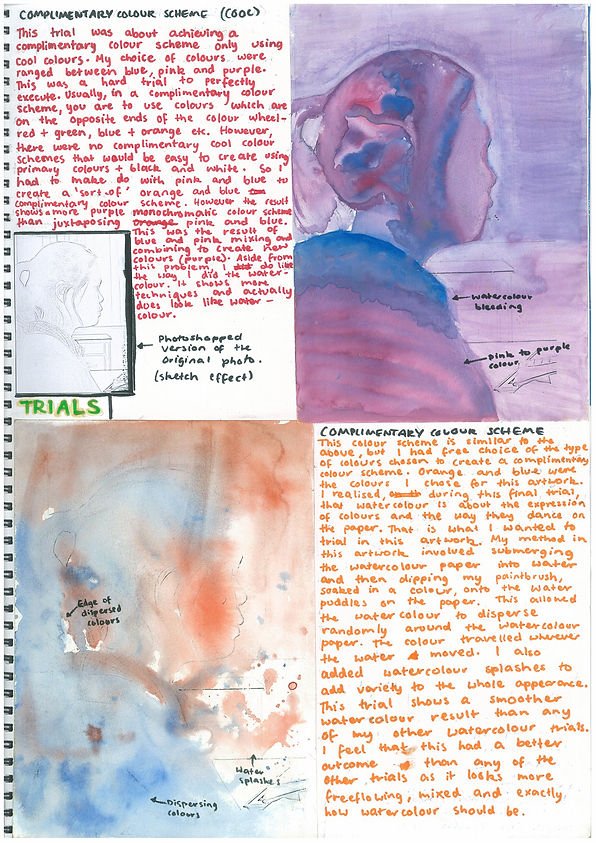 COMPLIMENTARY COLOUR SCHEME (COOL)
This trial was about achieving a
complimentary colour scheme only using
cool colours. My choice of colours were
ranged between blue, pink and purple.
This was a hard trial to perfectly
execute. Usually, in a complimentary colour
scheme, you are to use colours which are
on the opposite ends of the colour wheel-
red + green, blue + orange etc. However,
there were no complimentary cool colour
schemes that would be easy to create using
primary colours + black and white. So I
had to make do with pink and blue to
create a 'sort-of' orange and blue
complimentary colour scheme. However the result
shows a more purple monochromatic colour scheme
than juxtaposing orange pink and blue.
This was the result of
blue and pink mixing and
combining to create new
colours (purple). Aside from
this problem, I do like
the way I did the water-
colour. It shows more
techniques and actually
does look like water-
colour.
watercolour
bleeding
Pink to purple
colour
Photoshopped
version of the
original photo.
(sketch effect)
TRIALS
COMPLIMENTARY COLOUR SCHEME
This colour scheme is similar to the
above, but I had free choice of the type
of colours chosen to create a complimentary
colour scheme. Orange and blue were
the colours I chose for this artwork.
I realised, during this final trial,
that watercolour is about the expression
of colours and the way they dance on
the paper. That is what I wanted to
trial in this artwork. My method in
this artwork involved submerging
the watercolour paper into water
and then dipping my paintbrush,
soaked in a colour, onto the water
puddles on the paper. This allowed
the watercolour to disperse
randomly around the watercolour
paper. The colour travelled wherever
the water moved. I also
added watercolour splashes to
add variety to the whole appearance.
This trial shows a smoother
watercolour result than any
of my other watercolour trials.
I feel that this had a better
outcome than any of the
other trials as it looks more
freeflowing, mixed and exactly
how watercolour should be.
Edge of
dispersed
colours
Water
splashes
Dispersing
colours